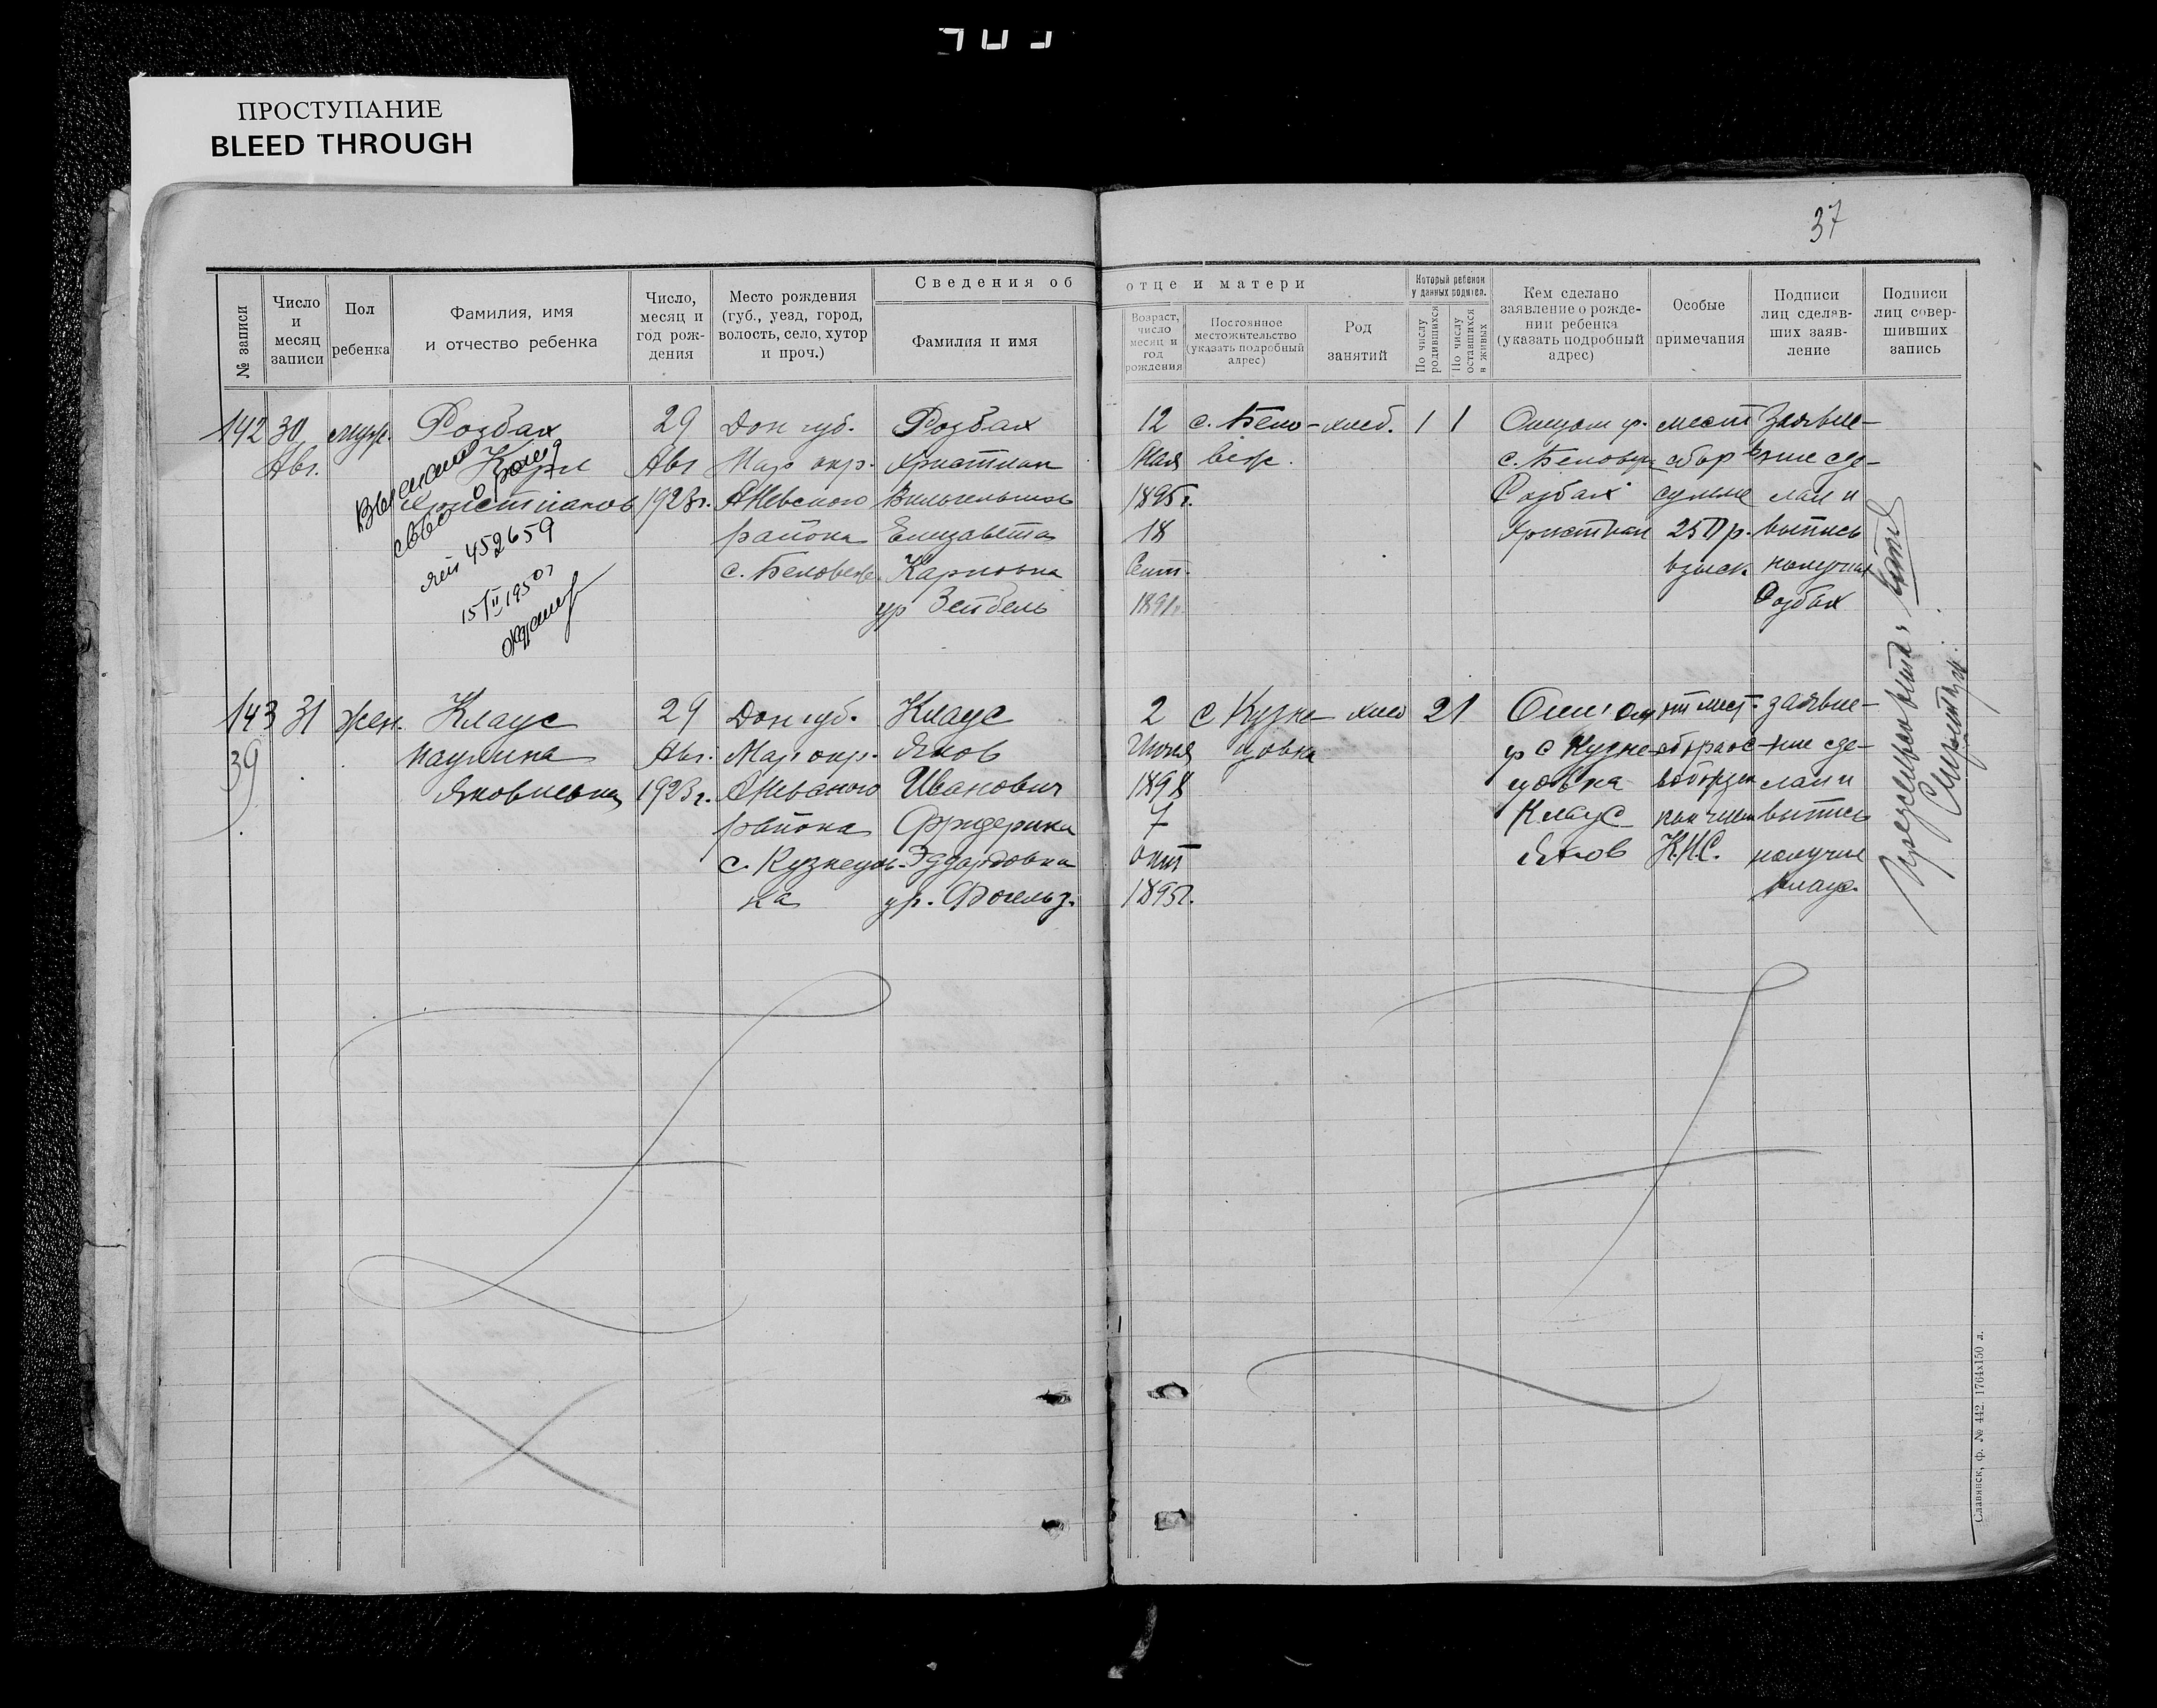 ПРОСТУПАНИЕ
BLEED THROUGH
37
№ записи
Число и месяц записи
Пол ребенка
Фамилия, имя и отчество ребенка
Число, месяц и год рождения
Место рождения (губ., уезд, город, волость, село, хутор и проч.)
Сведения об отце и матери
Фамилия и имя
Возраст, число месяц и год рождения
Постоянное местожительство (указать подробный адрес)
Род занятий
Который ребенок у данных родител.
По числу родившихся
По числу оставшихся в живых
Кем сделано заявление о рождении ребенка (указать подробный адрес)
Особые примечания
Подписи лиц сделавших заявление
Подписи лиц совершивших запись
142 30 муж. Розбах 29 Дон губ. Розбах 12 с. Бело- хлеб. 1 1 Отцом гр. мест Заявле-
Авг. Карл Авг Мар окр. Христиан Мая веж. с. Беловеж сбор ние сде-
Христианов 1923г. АНевского Вильгельмов 1895г. Розбах сумме лал и
района Елизавета 18 Христиан 250р. выпись
с. Беловеж. Карловна Сент. взыск получил
ур Зейбель 1891. Розбах
452659
15/II 1950г
143 31 жен. Клаус 29 Дон губ. Клаус 2 с Кузне- хлеб 2 1 Отцом мест. заявле-
39 Паулина Авг. Мар окр. Яков Июня цовка гр с Кузне- ние сде-
Яковлевна 1923г. АНевского Иванович 1898 цовка лал и
района Фридерика 7 Клаус выпись
с. Кузнецов- Эдуардовна окт Яков К.Н.С. получил
ка ур. Фогельз. 1895г. Клаус
Славянск, ф. № 442. 1764х150 л.